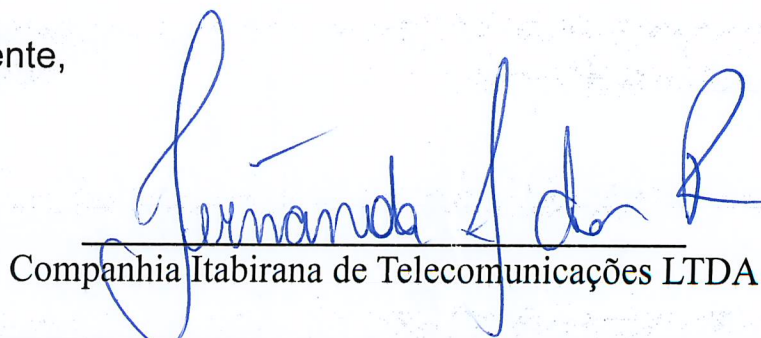 ente,
Fernanda J dos R
Companhia Itabirana de Telecomunicações LTDA